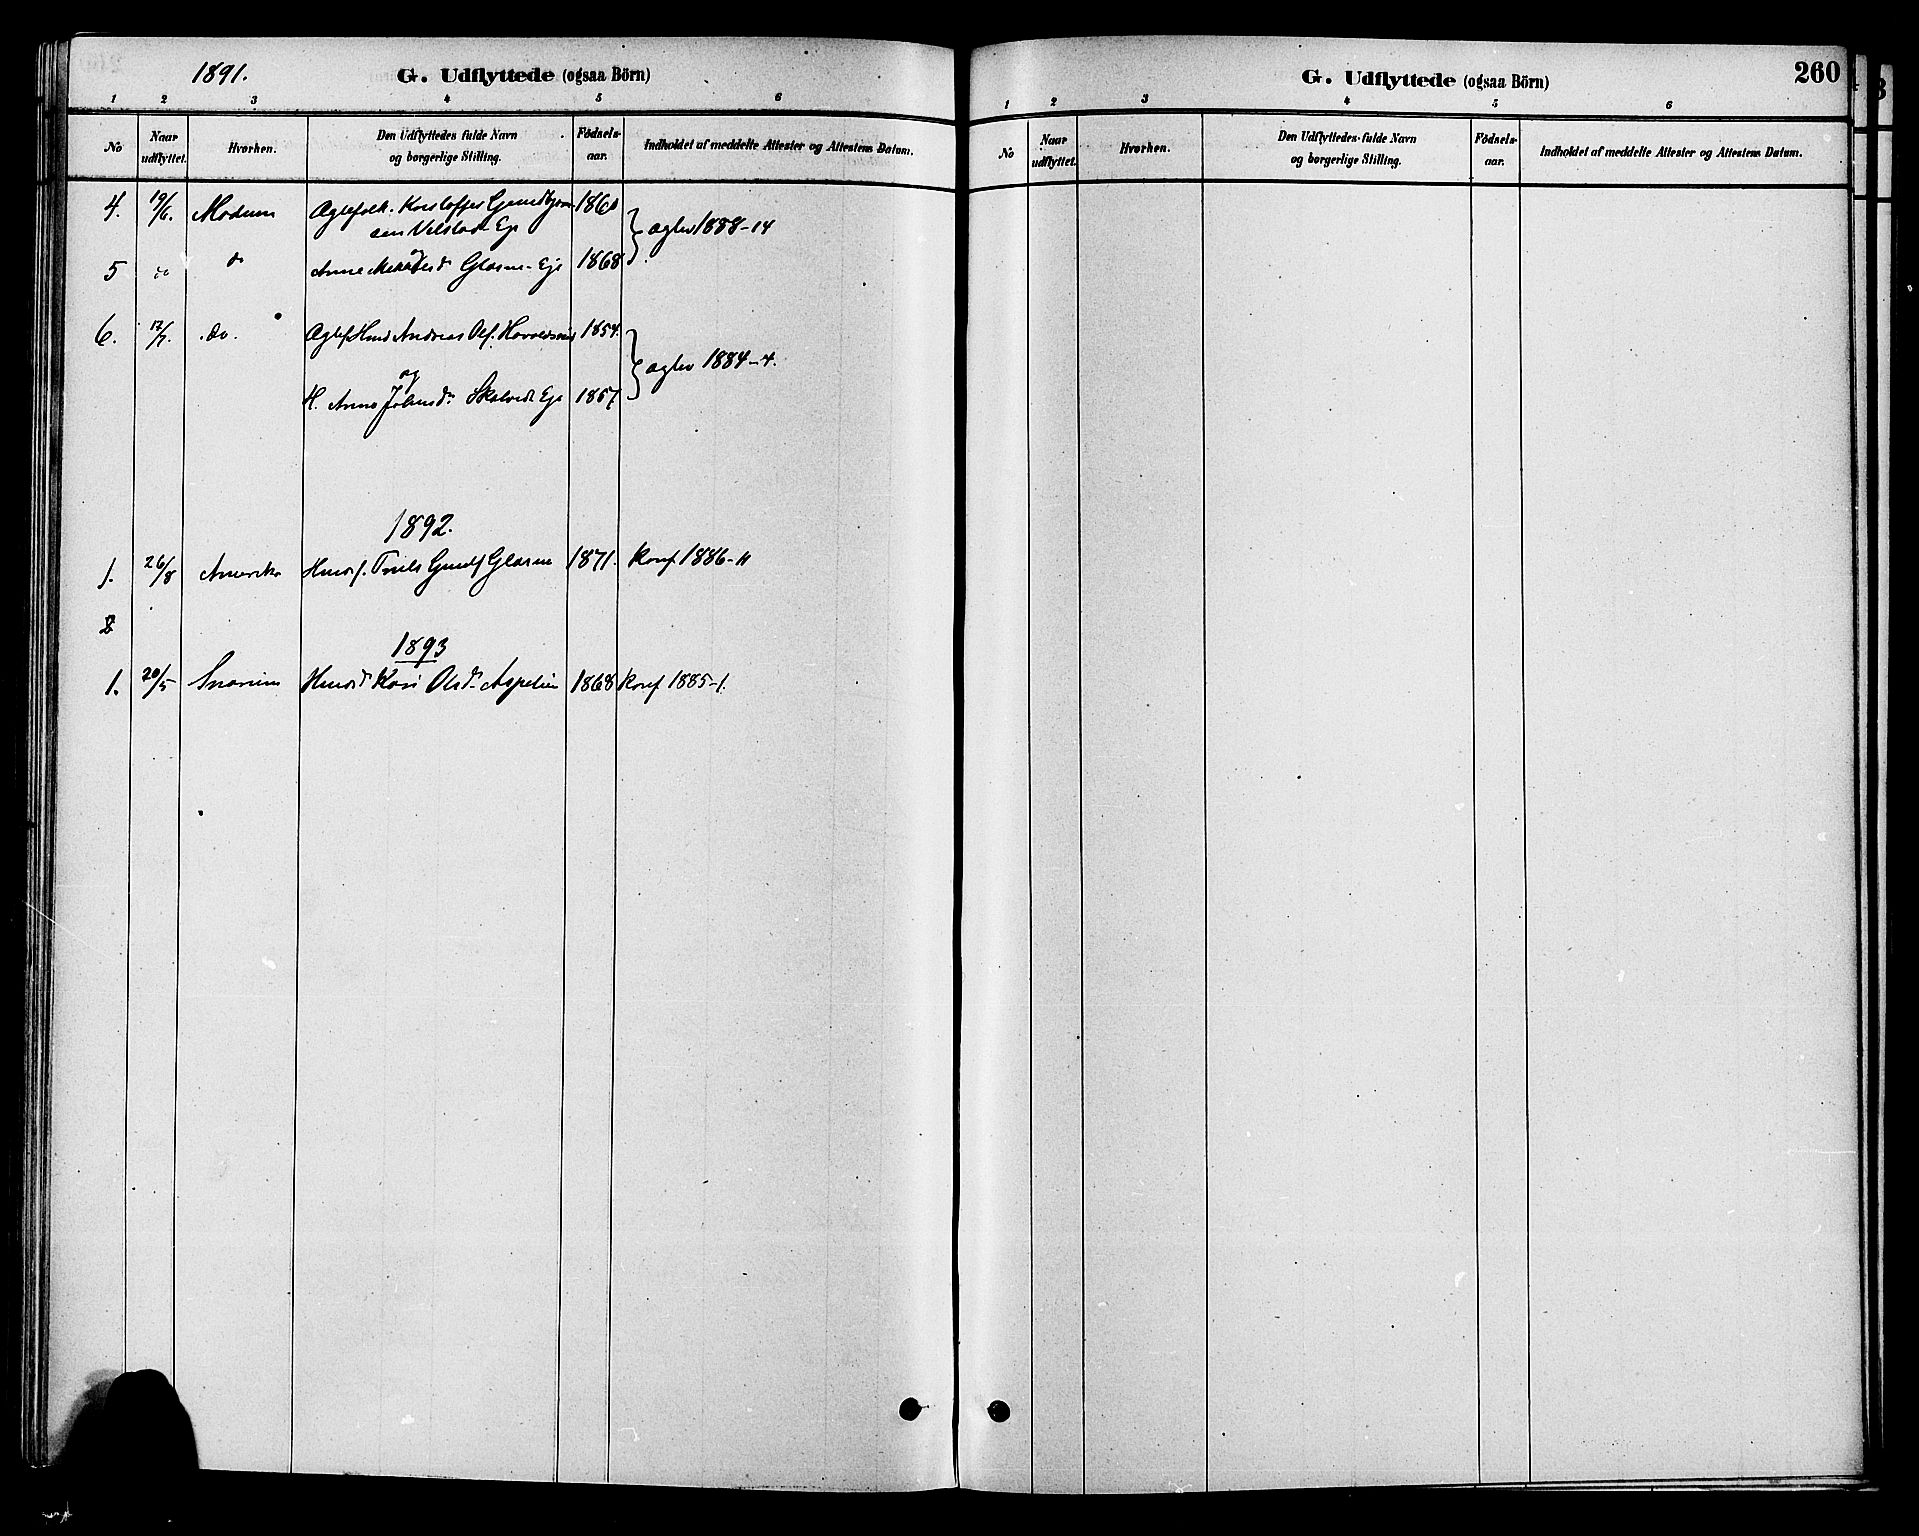 1891. G. Udflyttede (ogsaa Börn)
1 2 3 4 5 6
No Naar udflyttet. Hvorhen. Den Udflyttedes fulde Navn og borgerlige Stilling. Födsels-aar. Indholdet af meddelte Attester og Attestens Datum.
4. 19/6. Modum Ægtefolk. Kristoffer Gundbjørn- 1860
sen Velstad Eje } ægtev 1888-14
og
5 do do Anne Glasne-Eje 1868
6. 17/7. do. Andreas Ols. Haraldsrud 1854.
} ægtev 1884-4.
og
H. Anne Johnsd. Skalvedt Eje 1857.
1892.
1. 26/8 Amerika Truls Gulls Glasne 1871. konf 1886-11
2
1893
1. 20/5 Snarum Kari Olsd. Aspelien 1868 konf 1885-1.
G. Udflyttede (ogsaa Börn) 260
1 2 3 4 5 6
No Naar udflyttet. Hvorhen. Den Udflyttedes fulde Navn og borgerlige Stilling. Födsels-aar. Indholdet af meddelte Attester og Attestens Datum.